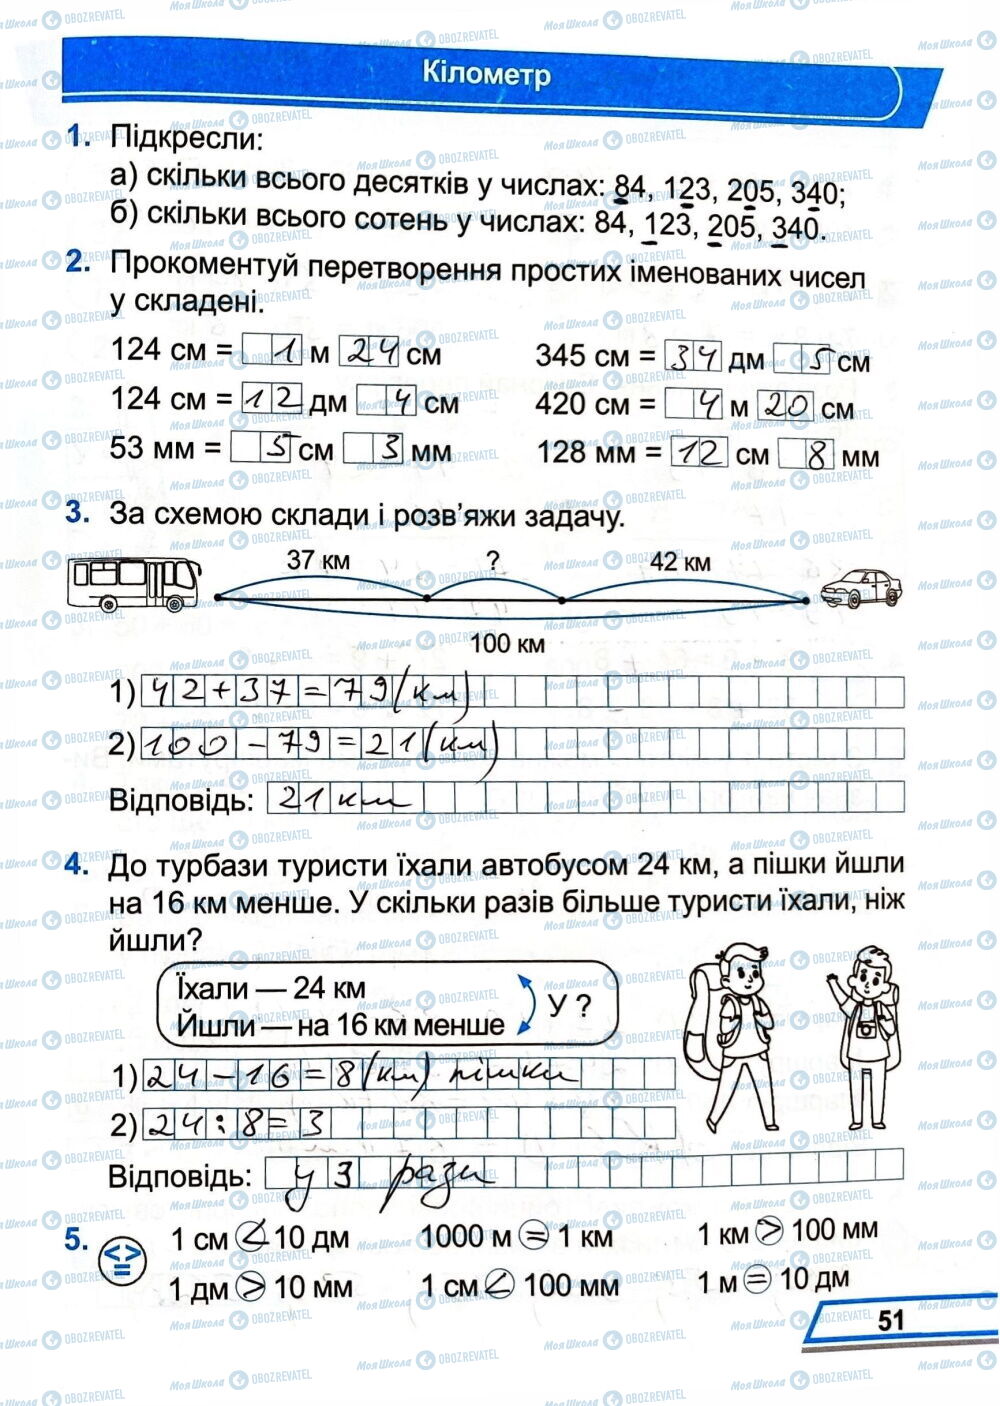 Кілометр
1. Підкресли:
а) скільки всього десятків у числах: 84, 123, 205, 340;
б) скільки всього сотень у числах: 84, 123, 205, 340.
2. Прокоментуй перетворення простих іменованих чисел
у складені.
124 см = 1 м 24 см 345 см = 34 дм 5 см
124 см = 12 дм 4 см 420 см = 4 м 20 см
53 мм = 5 см 3 мм 128 мм = 12 см 8 мм
3. За схемою склади і розв’яжи задачу.
37 км ? 42 км
100 км
1) 42+37=79(км)
2) 100-79=21(км)
Відповідь: 21 км
4. До турбази туристи їхали автобусом 24 км, а пішки йшли
на 16 км менше. У скільки разів більше туристи їхали, ніж
йшли?
Їхали — 24 км
Йшли — на 16 км менше У ?
1) 24-16=8(км) пішки
2) 24:8=3
Відповідь: у 3 рази
5. < > = 1 см < 10 дм 1000 м = 1 км 1 км > 100 мм
1 дм > 10 мм 1 см < 100 мм 1 м = 10 дм
51
МояШкола OBOZREVATEL